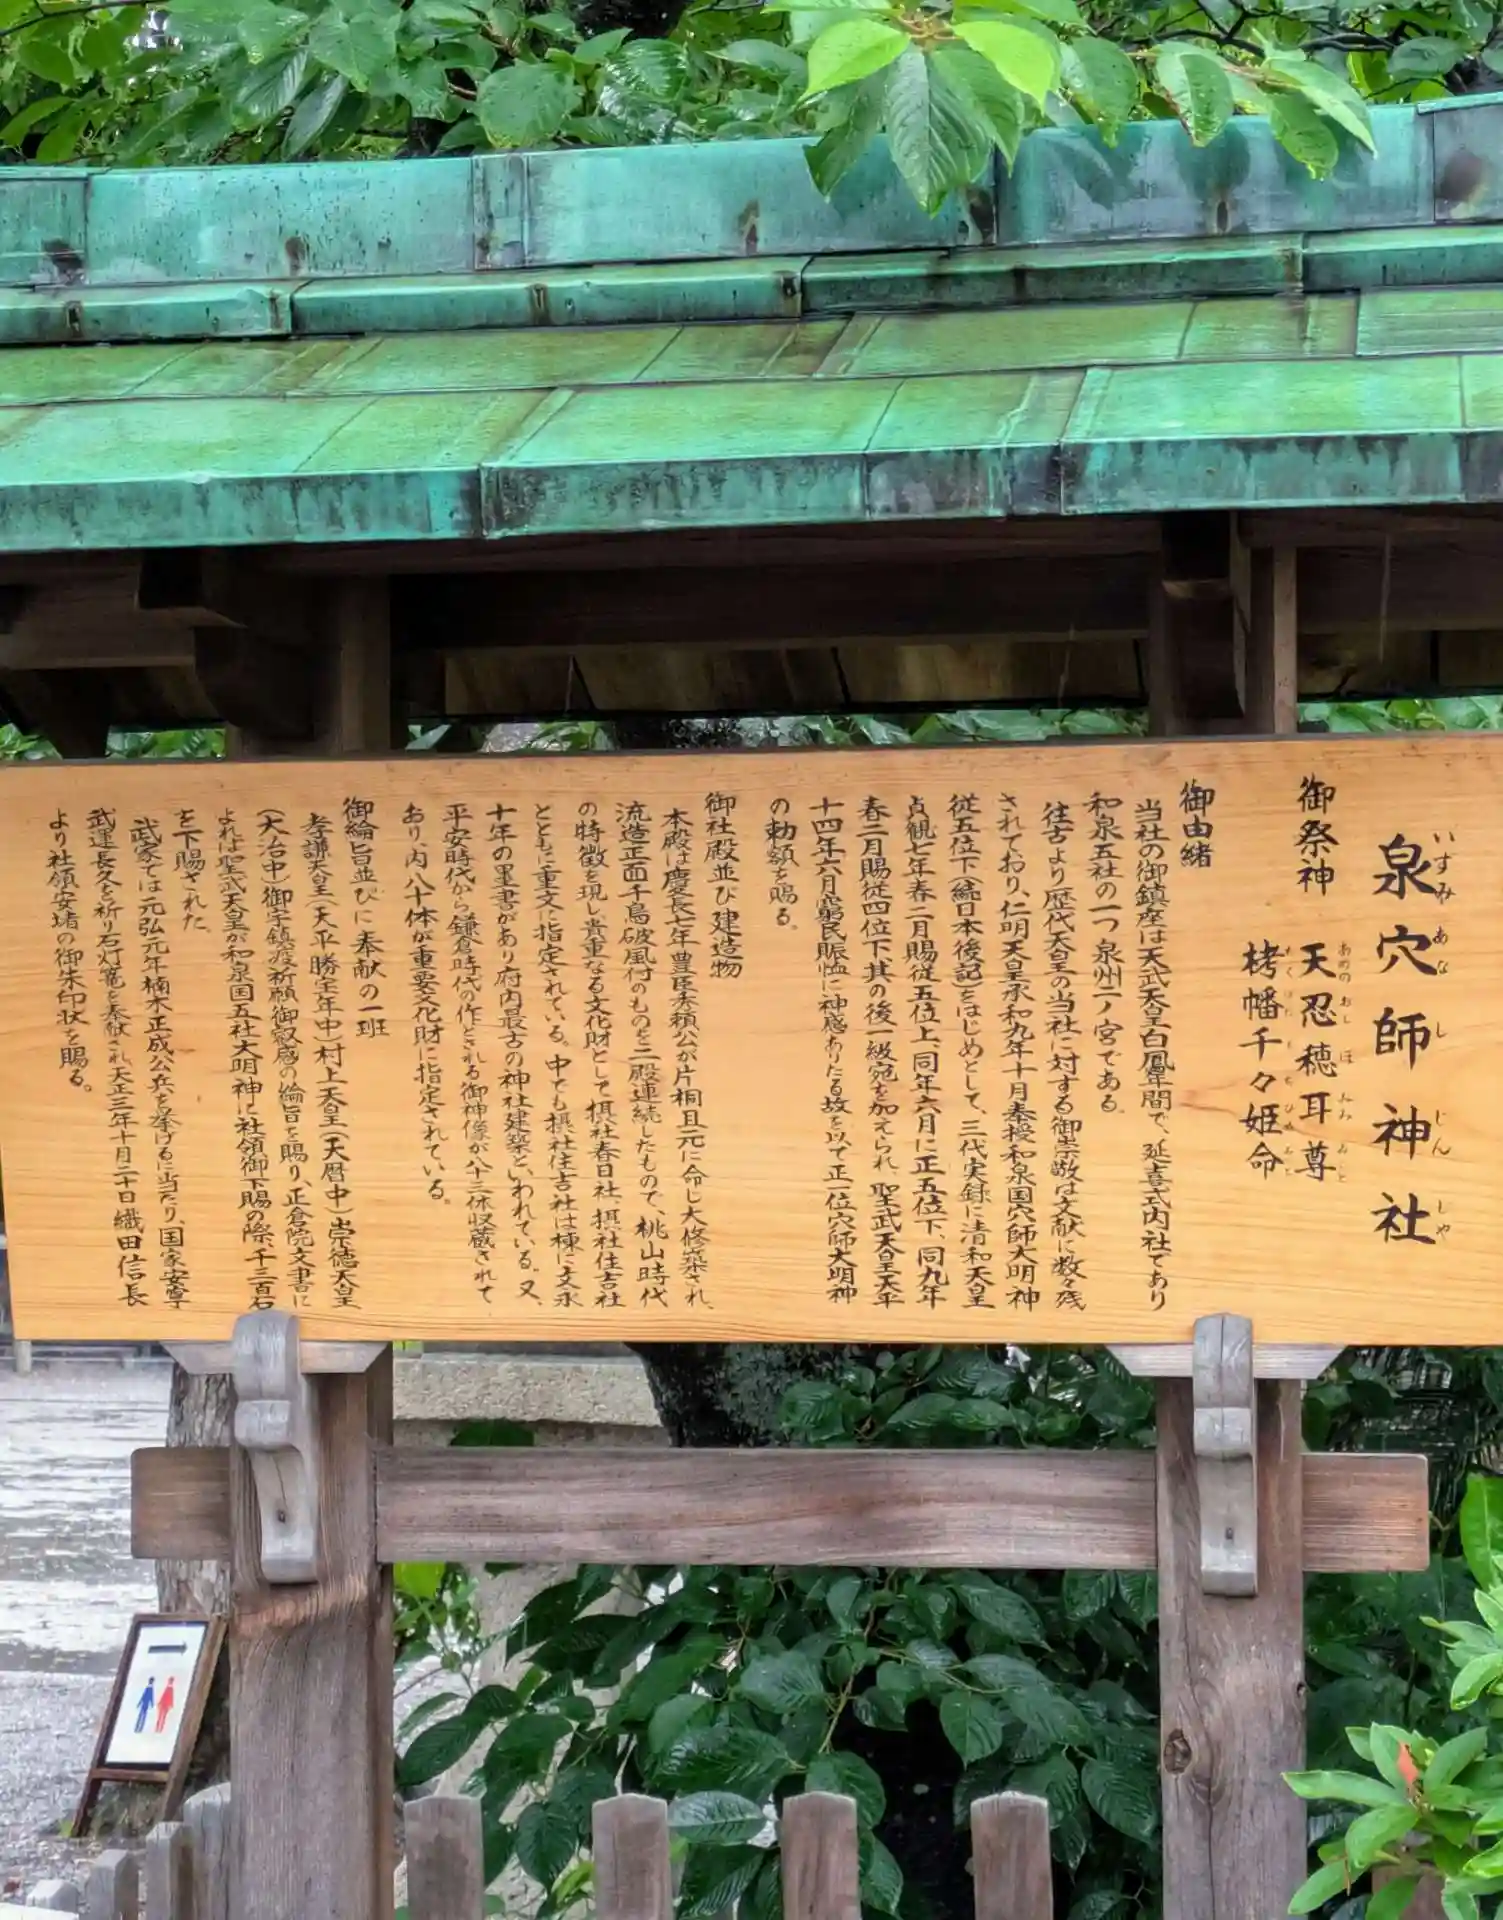 泉穴師神社
いずみあなしじんじゃ
御祭神 天忍穂耳尊
あめのおしほみみのみこと
栲幡千々姫命
御由緒
当社の御鎮座は天武天皇白鳳年間で、延喜式内社であり
和泉五社の一つ泉州二ノ宮である。
往古より歴代天皇の当社に対する御崇敬は文献に数々残
されており、仁明天皇承和九年十月奉授和泉国穴師大明神
従五位下(続日本後記)をはじめとして、三代実録に清和天皇
貞観七年春二月賜従五位上、同年六月に正五位下、同九年
春二月賜従四位下、其の後一級宛を加えられ、聖武天皇天平
十四年六月窮民賑恤に神感ありたる故を以て正一位穴師大明神
の勅額を賜る。
御社殿並び建造物
本殿は慶長七年豊臣秀頼公が片桐且元に命じ大修築され、
流造正面千鳥破風付のものを二殿連続したもので、桃山時代
の特徴を現し貴重なる文化財として摂社春日社、摂社住吉社
とともに重文に指定されている。中でも摂社住吉社は棟に文永
十年の墨書があり府内最古の神社建築といわれている。又、
平安時代から鎌倉時代の作とされる御神像が八十三体収蔵されて
おり、内八十体が重要文化財に指定されている。
御綸旨並びに奉献の一班
孝謙天皇(天平勝宝年中)村上天皇(天暦中)崇徳天皇
(大治中)御宇鎮疫祈願御叡感の綸旨を賜り、正倉院文書に
よれば聖武天皇が和泉国五社大明神に社領御下賜の際、千三百石
を下賜された。
武家では元弘元年楠木正成公兵を挙げるに当たり、国家安寧
武運長久を祈り石灯篭を奉献され、天正三年十月二十日織田信長
より社領安堵の御朱印状を賜る。